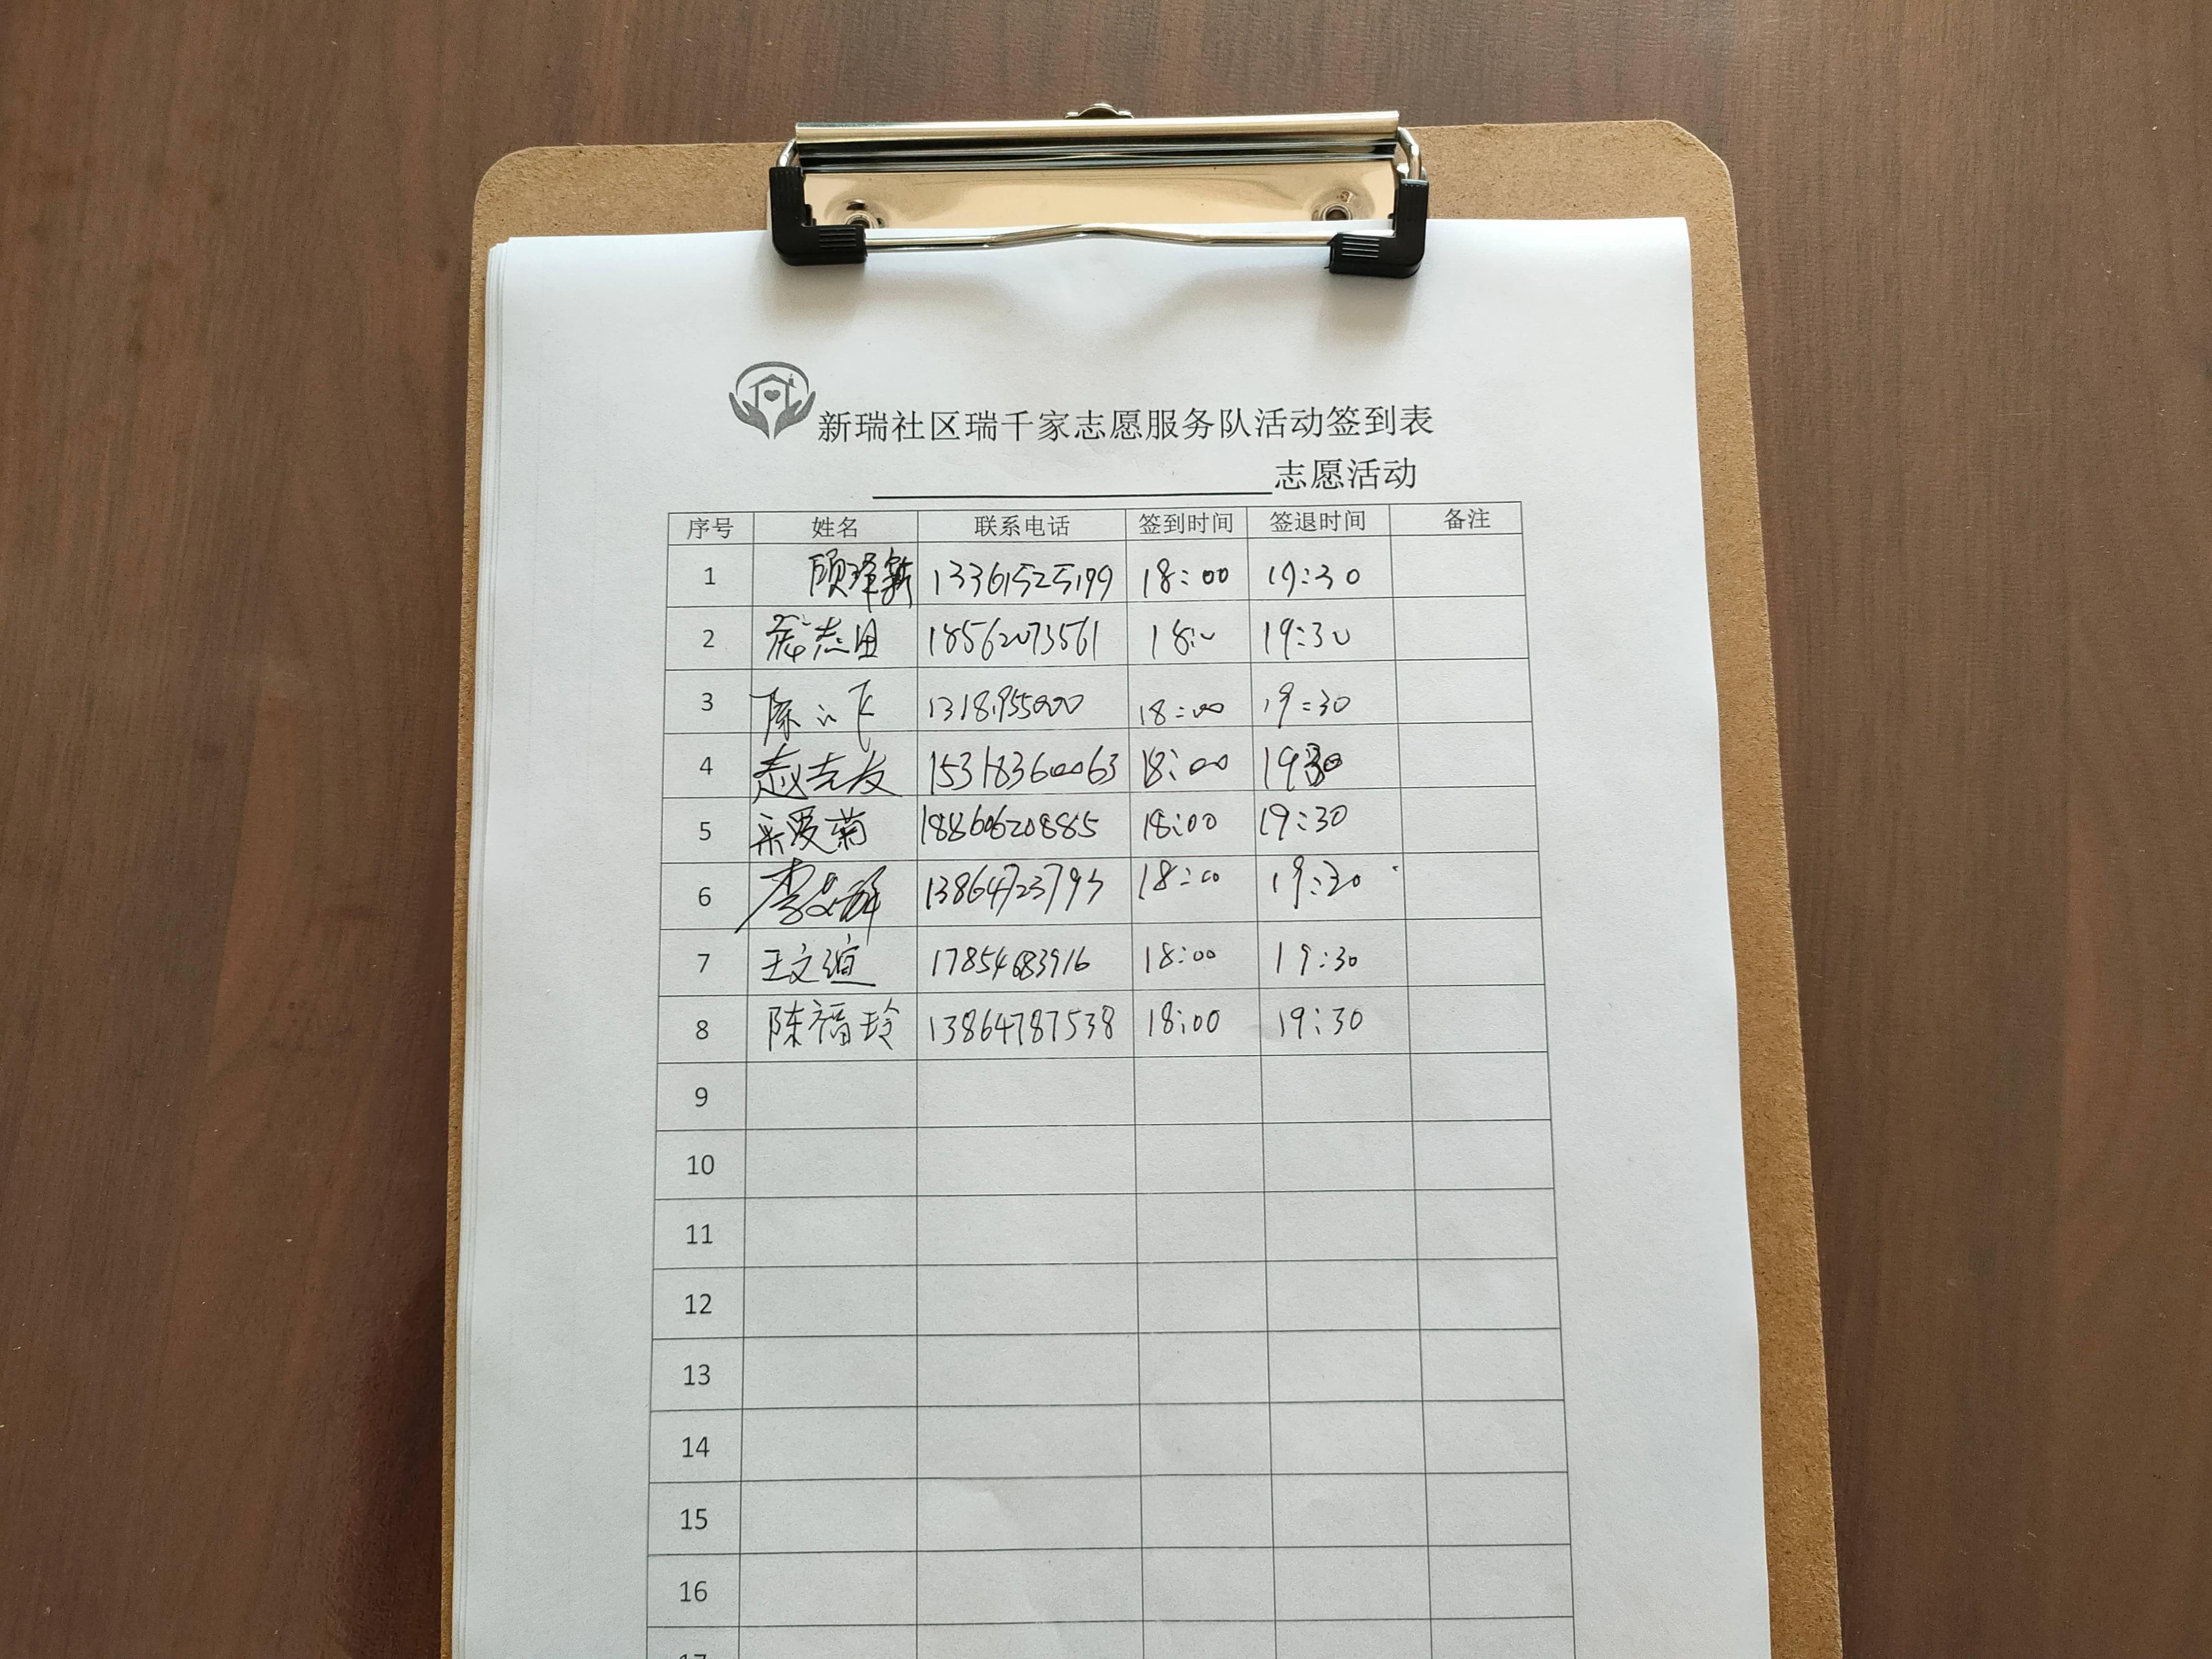 新瑞社区瑞千家志愿服务队活动签到表
志愿活动
序号 姓名 联系电话 签到时间 签退时间 备注
1 顾泽新 13361525199 18:00 19:30
2 志田 18562073561 18:00 19:30
3 陈 飞 18:00 19:30
4 赵克友 15318360063 18:00 19:30
5 宋爱菊 188606208885 18:00 19:30
6 李 13864723793 18:00 19:30
7 王文谊 17854683916 18:00 19:30
8 陈福玲 13864787538 18:00 19:30
9
10
11
12
13
14
15
16
17